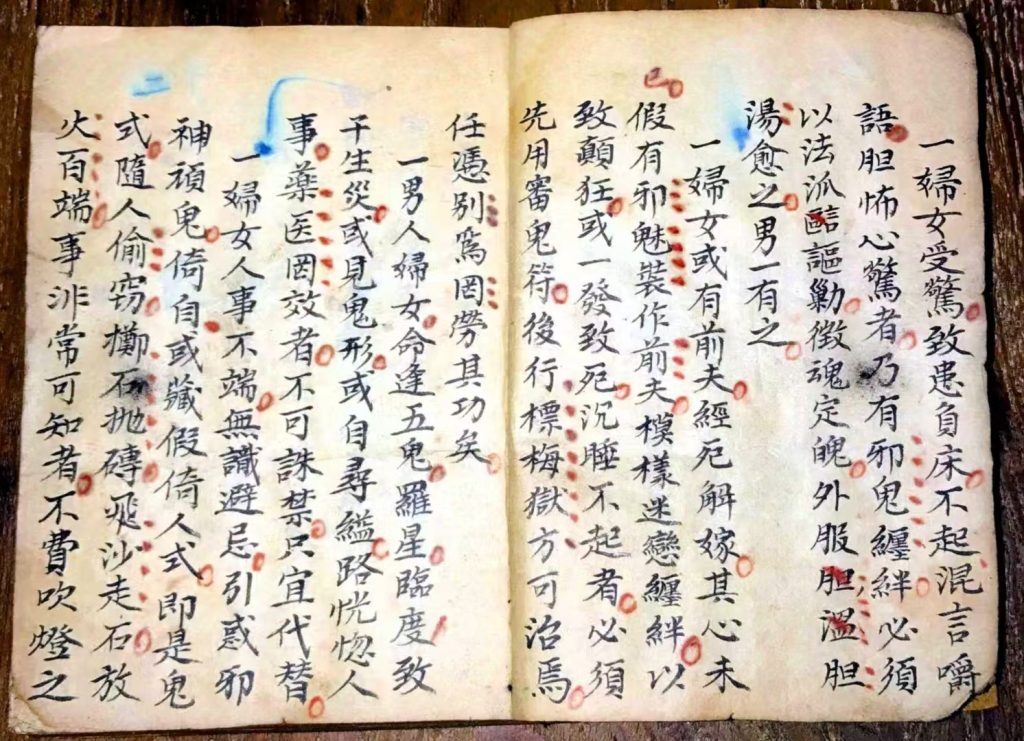 一婦女受驚致患負床不起混言嚼
語胆怖心驚者乃有邪鬼纏絆必須
以法派謳勦徵魂定魄外服胆溫胆
湯愈之男一有之
一婦女或有前夫經死解嫁其心未
假有邪魅裝作前夫模樣迷戀纏絆以
致顛狂或一發致死沉睡不起者必須
先用審鬼符後行標梅獄方可治焉
任憑別為罔勞其功矣
一男人婦女命逢五鬼羅星臨度致
干生災或見鬼形或自尋縊路恍惚人
事藥医罔效者不可誅禁只宜代替
一婦女人事不端無識避忌引惑邪
神頑鬼倚自或藏假倚人式即是鬼
式隨人偷窃擲石拋磚飛沙走石放
火百端事非常可知者不費吹燈之
二